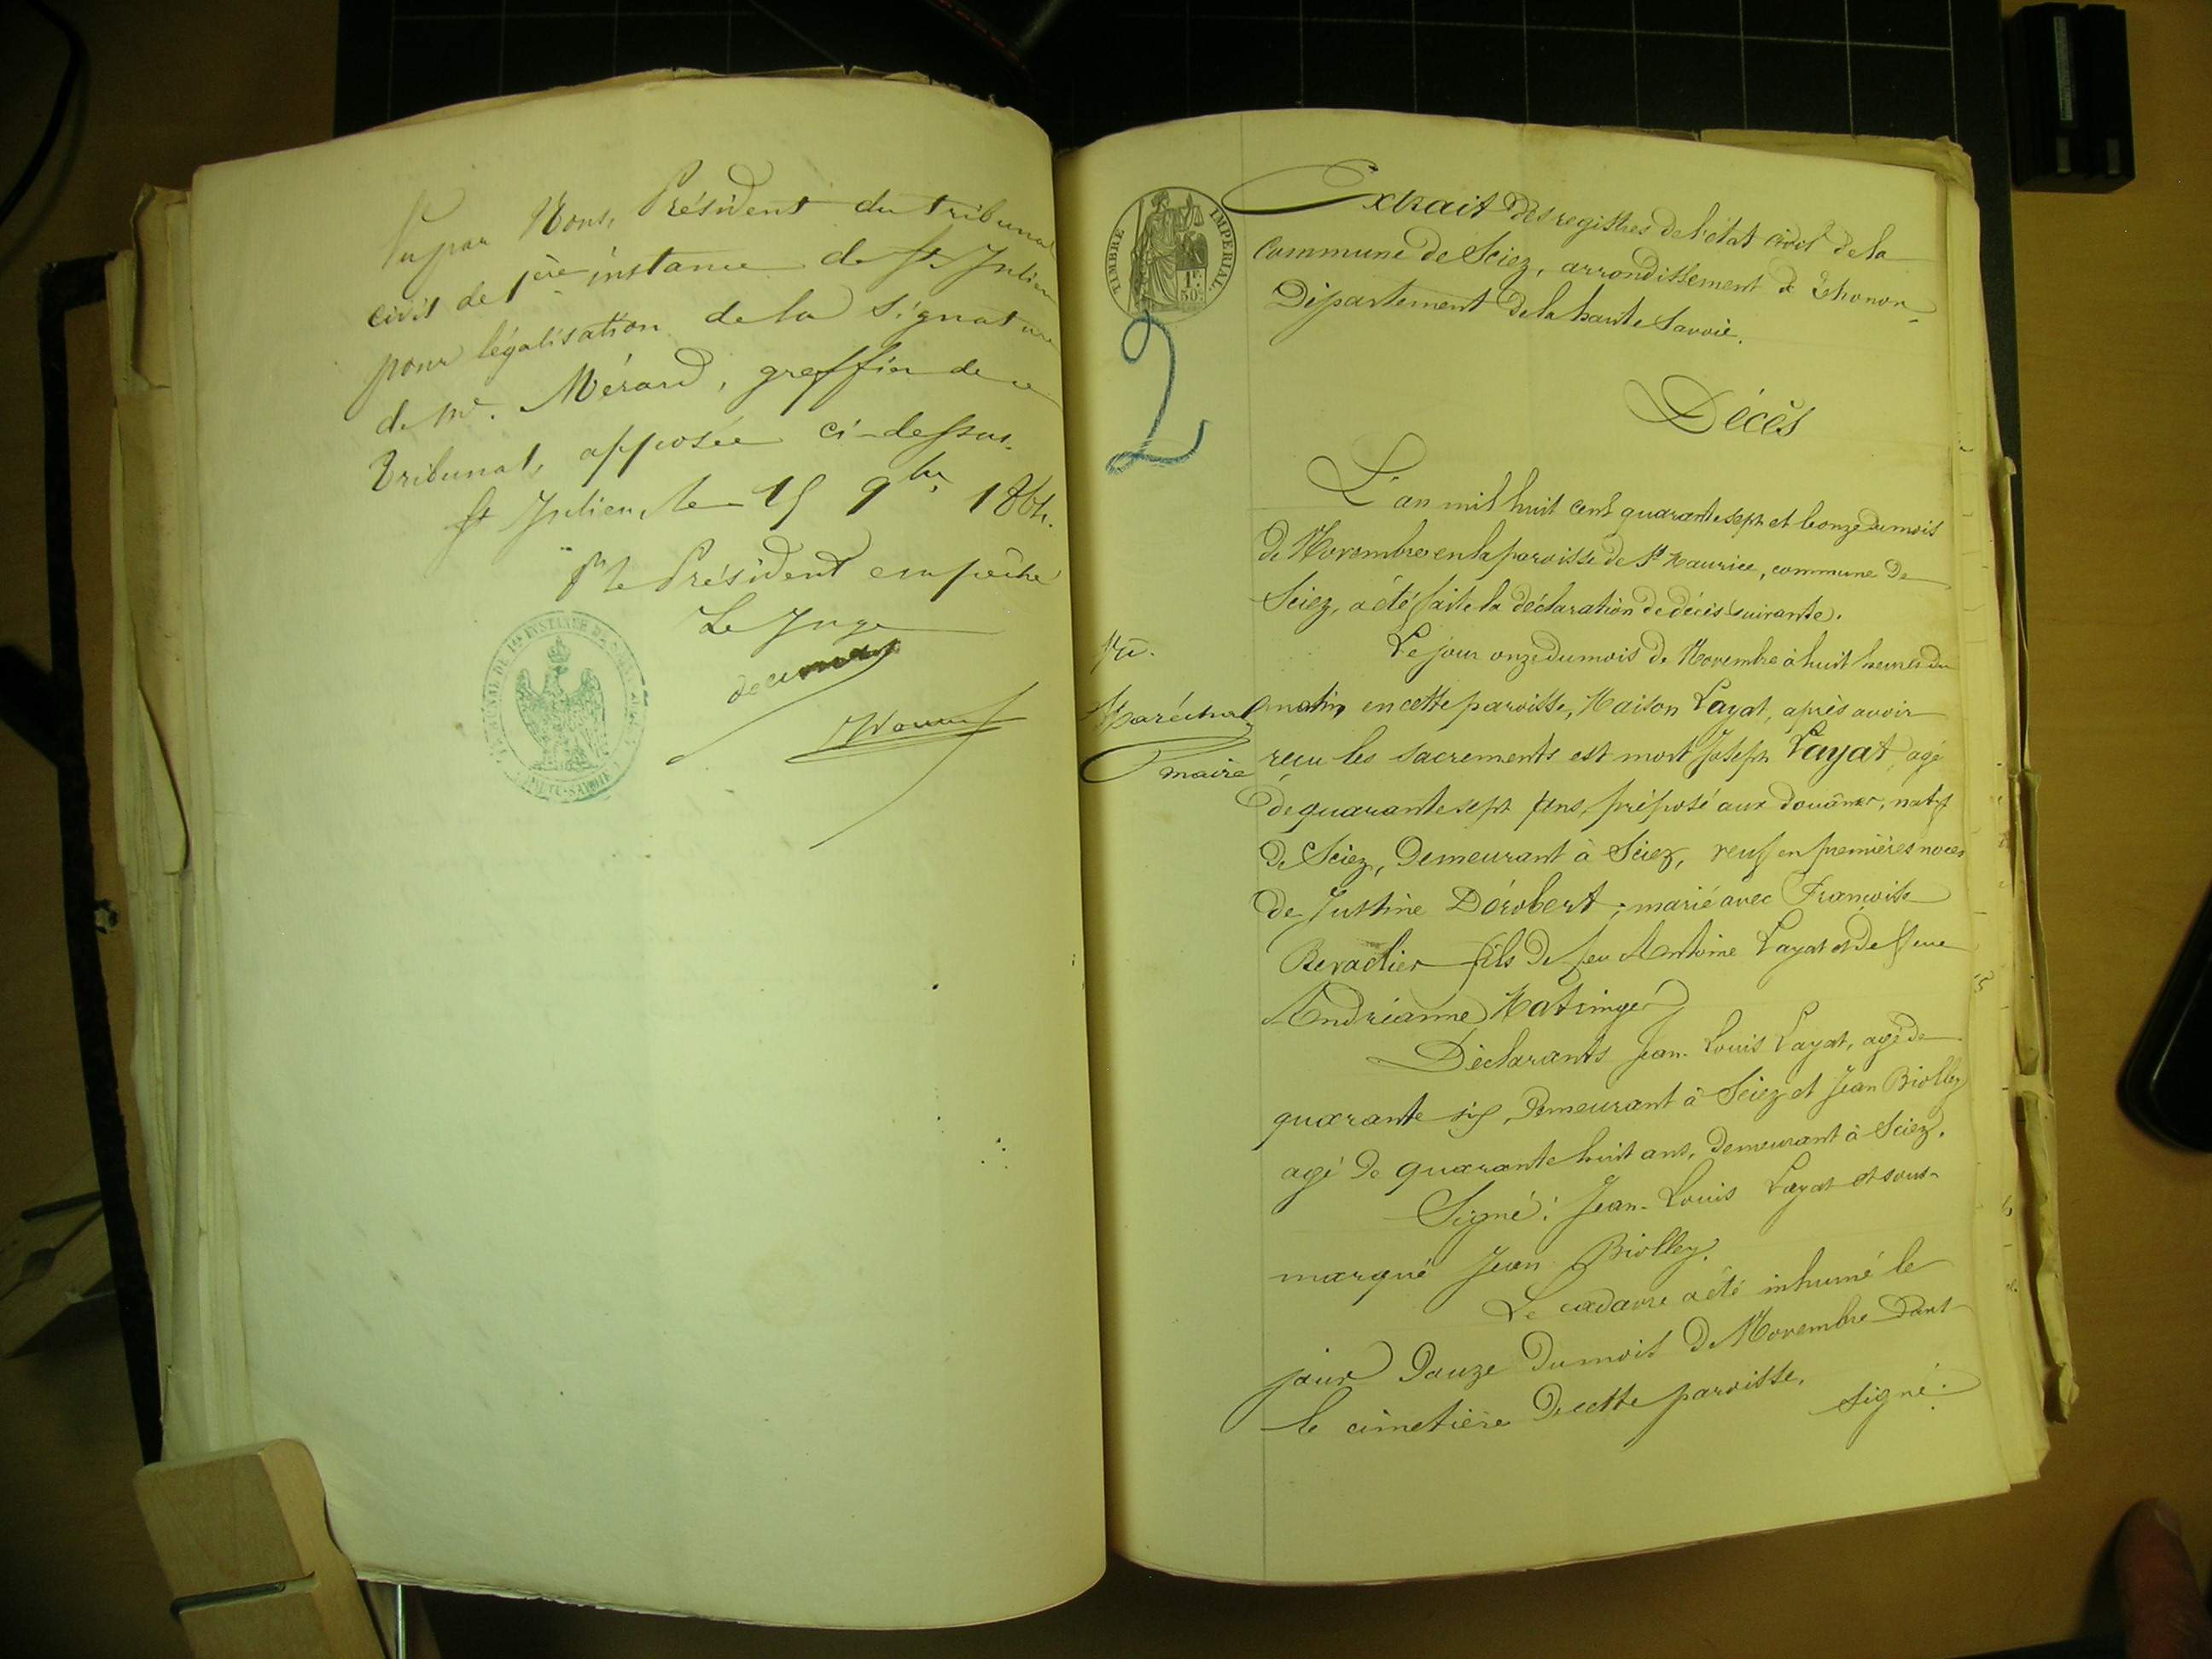 Vu par Nous, Président du tribunal
civil de 1ère instance de St Julien
pour légalisation de la signature
de mr. Mérard, greffier de ce
tribunal, apposée ci-dessus.
St Julien, le 15 9bre 1864.
pr le Président empêché
Le Juge
TRIBUNAL DE 1re INSTANCE DE
HAUTE-SAVOIE
TIMBRE IMPERIAL
1F.
50c.
2
Extrait des registres de l'état civil de la
Commune de Sciez, arrondissement de Thonon
Département de la haute Savoie.
Décès
L'an mil huit cent quarante sept et le onze du mois
de Novembre en la paroisse de St Maurice, commune de
Sciez, a été faite la déclaration de décès suivante.
Le jour onze du mois de Novembre à huit heures du
matin, en cette paroisse, Maison Layat, après avoir
reçu les sacrements est mort Joseph Layat, agé
de quarante sept ans, préposé aux douânes, natif
de Sciez, demeurant à Sciez, veuf en premières noces
de Justine Dérobert, marié avec Françoise
fils de feu Antoine Layat et de feue
Andrianne
Déclarants Jean-Louis Layat, agé de
quarante six, demeurant à Sciez et Jean Biolley
agé de quarante huit ans, demeurant à Sciez.
Signé: Jean-Louis Layat et sous-
marqué Jean Biolley.
Le cadavre a été inhumé le
jour douze du mois de Novembre dans
le cimetière de cette paroisse. signé:
Vu.
Maréchal
maire